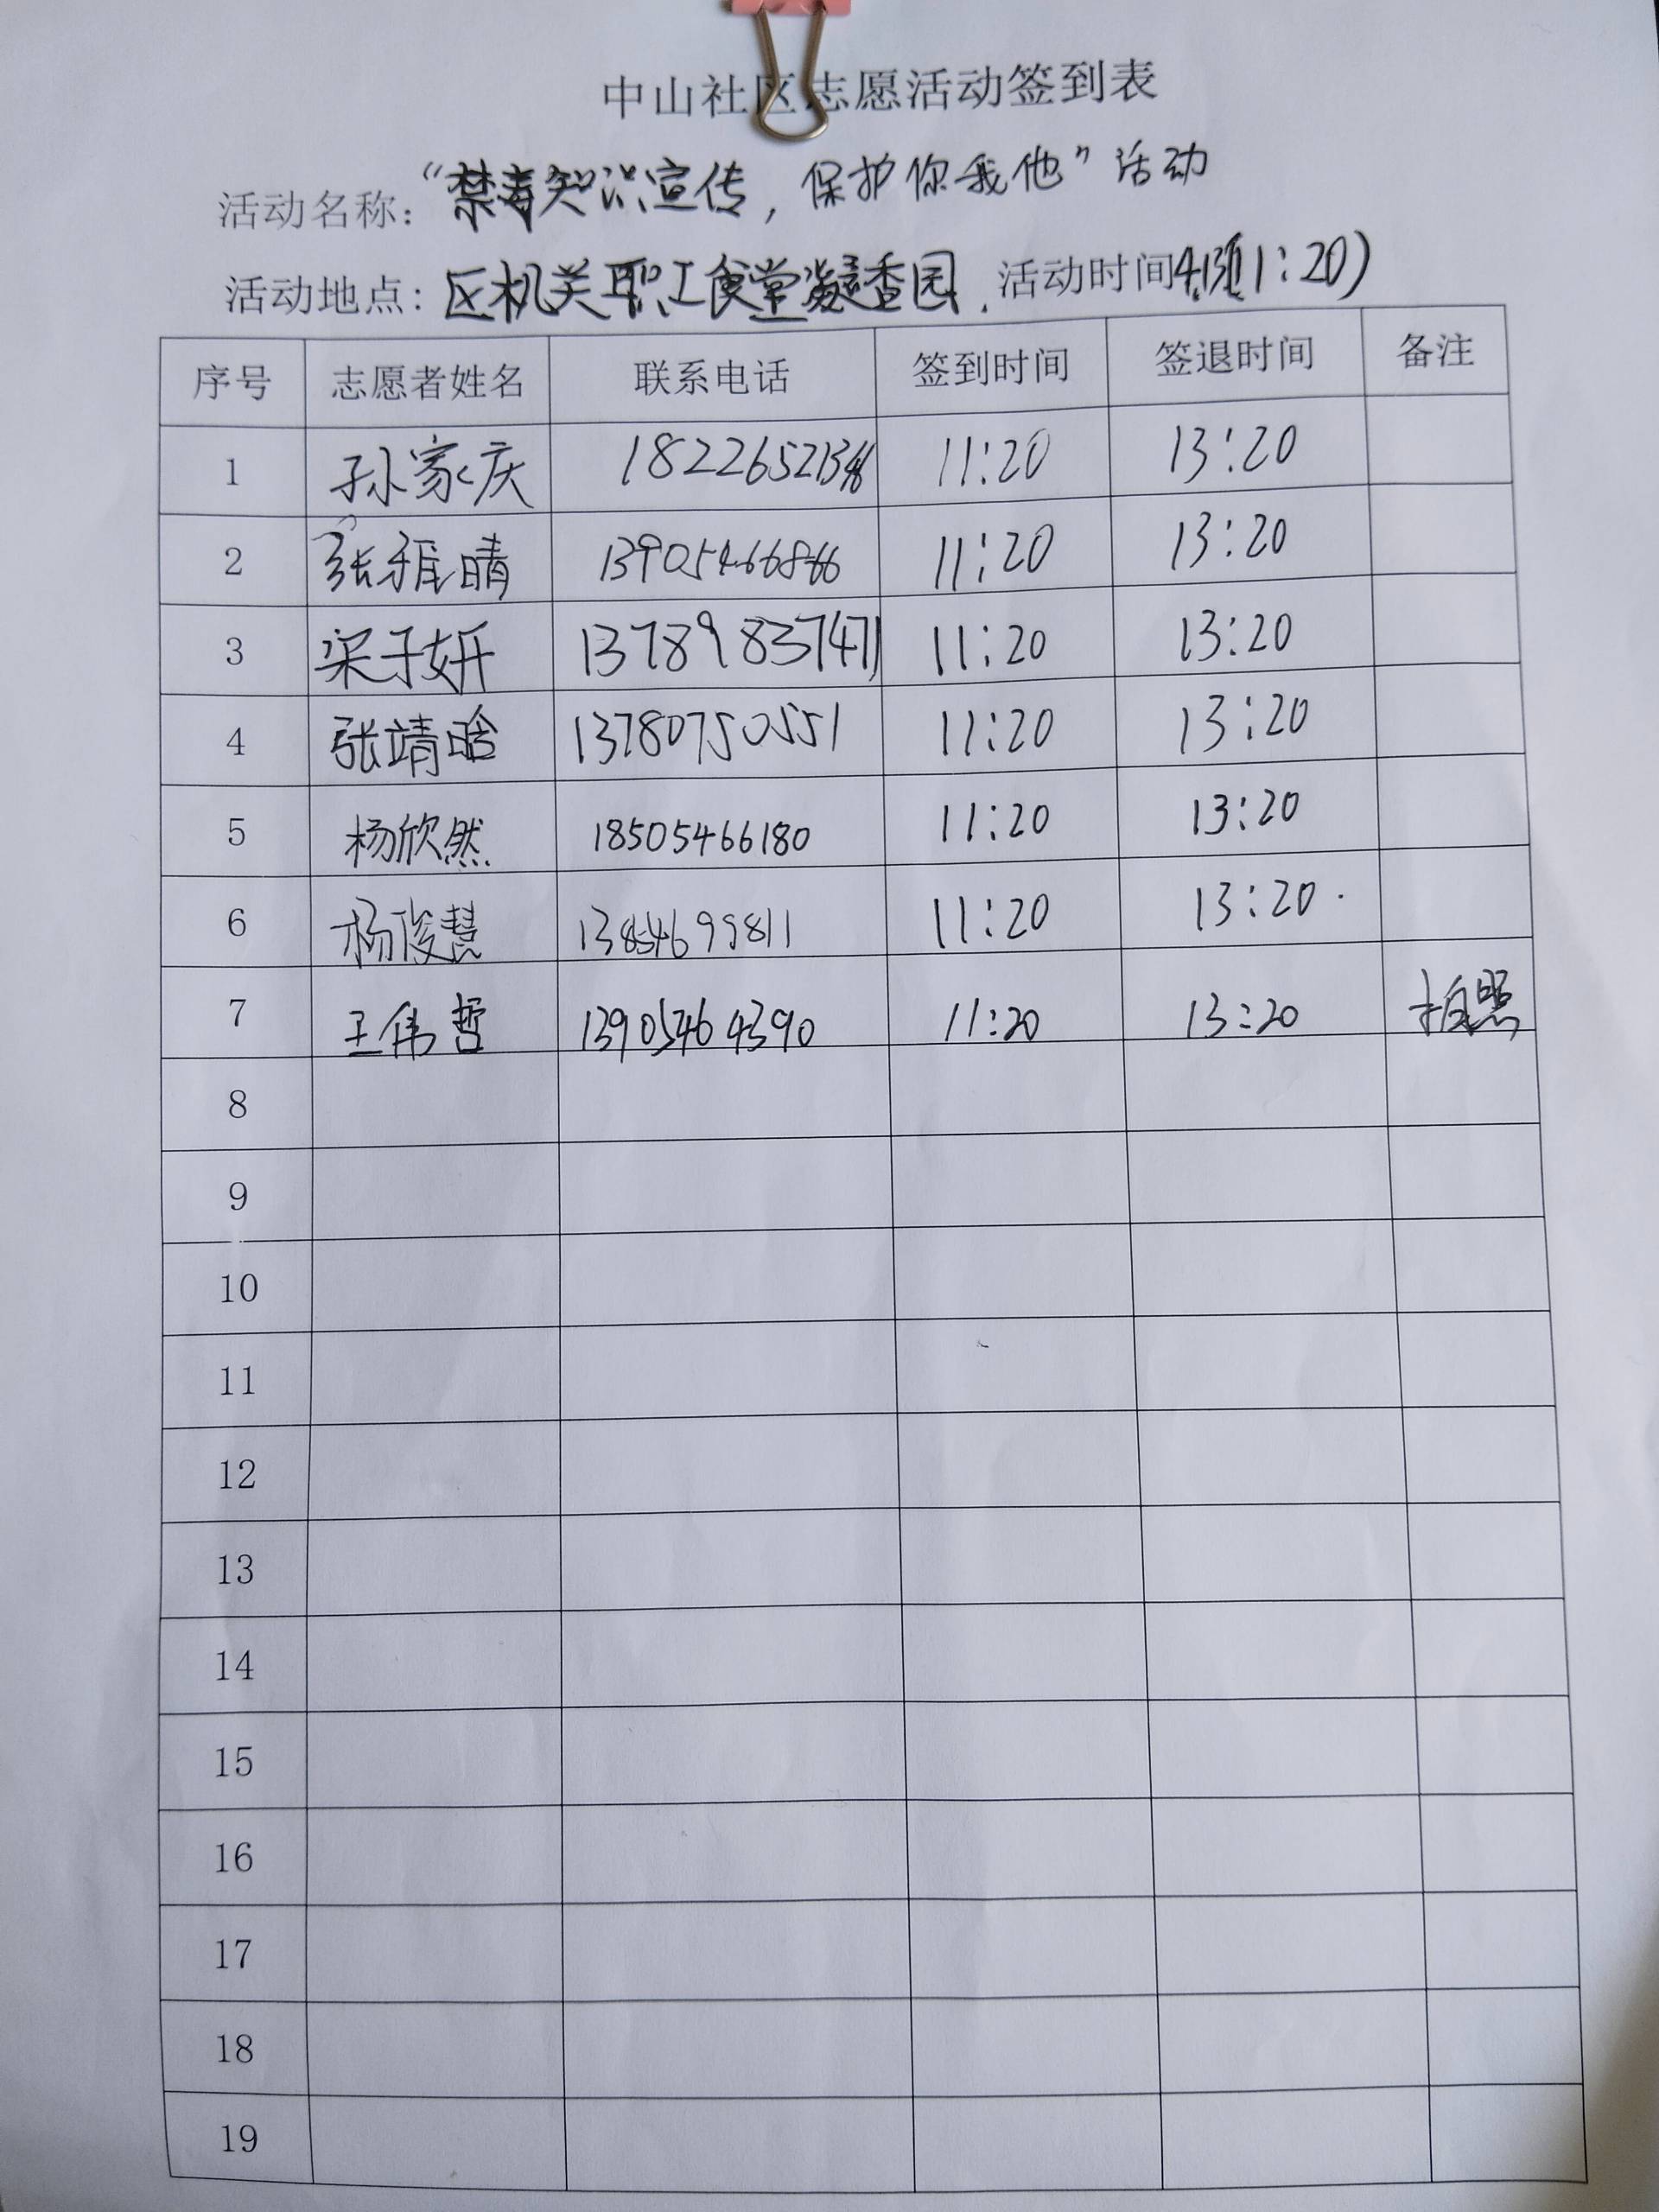 中山社区志愿活动签到表
活动名称：“禁毒知识宣传，保护你我他”活动
活动地点：区机关职工食堂凝香园. 活动时间 11:20)
序号 志愿者姓名 联系电话 签到时间 签退时间 备注
1 孙家庆 11:20 13:20
2 张雅晴 13905466866 11:20 13:20
3 梁子妍 13789837471 11:20 13:20
4 张靖晗 13780750551 11:20 13:20
5 杨欣然 18505466180 11:20 13:20
6 杨俊慧 13854699811 11:20 13:20.
7 王伟哲 13905464390 11:20 13:20 拍照
8
9
10
11
12
13
14
15
16
17
18
19